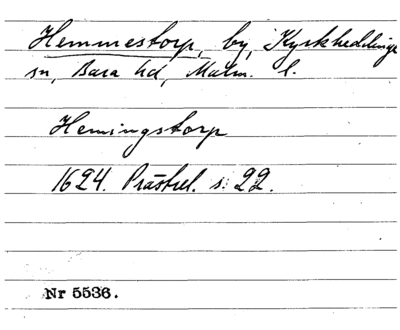 Hemmestorp, by, Kyrkheddinge
sn, Bara hd, Malm. l.
Hemingstorp
1624. Prästrel. s. 22.
Nr 5536.